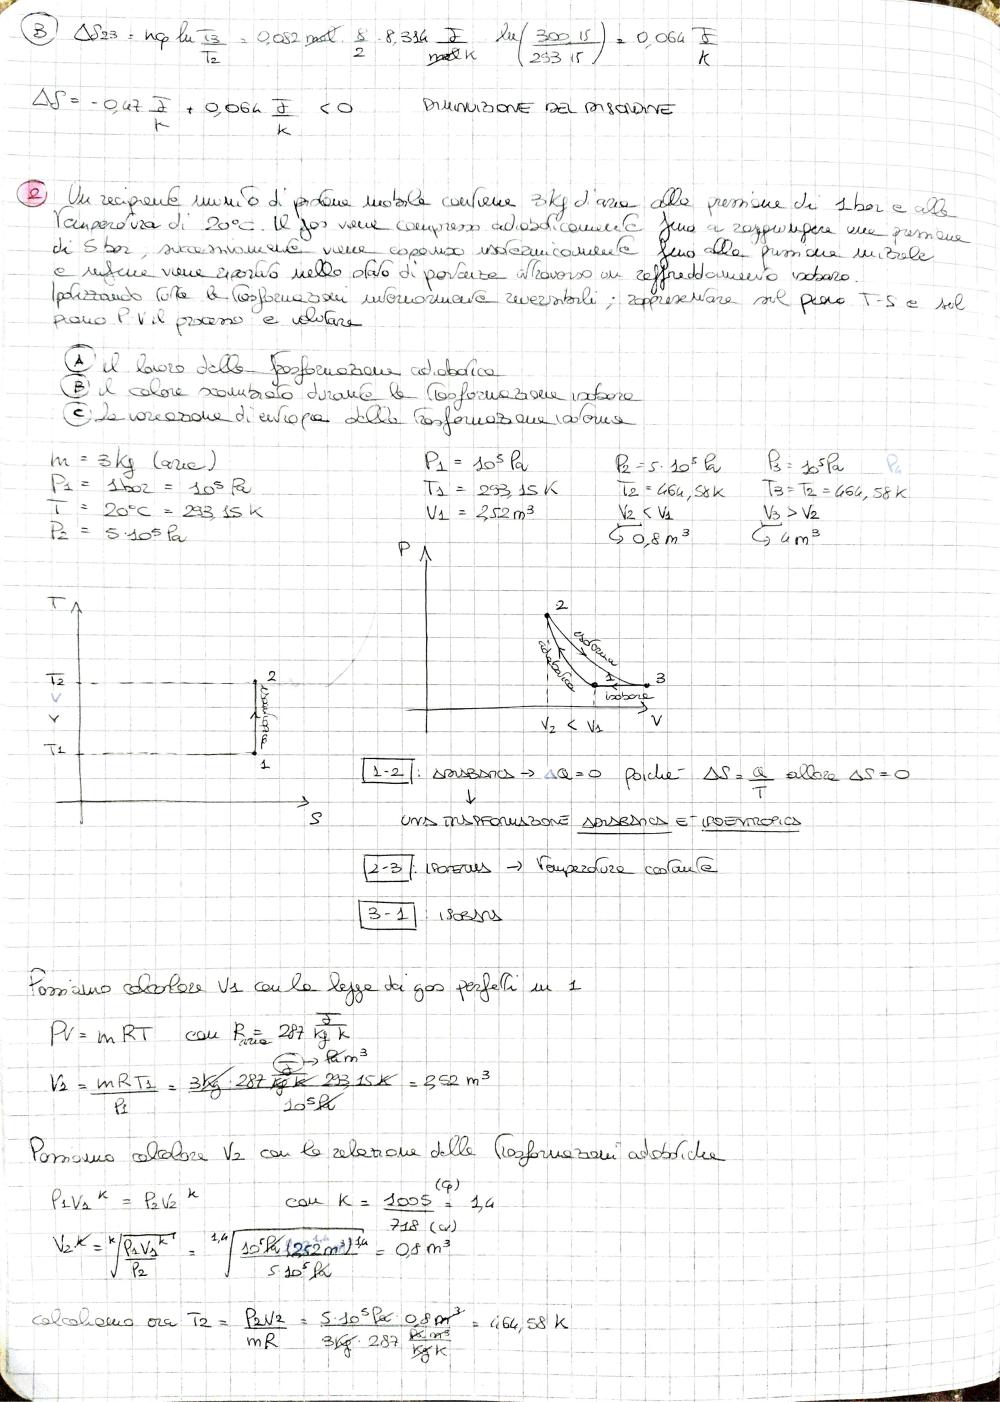 3 ΔS23 = ncp ln T3/T2 = 0,082 mol · 5/2 · 8,314 J/mol K ln(300,15/293,15) = 0,064 J/K
ΔS = -0,47 J/K + 0,064 J/K < 0 DIMINUZIONE DEL DISORDINE
2 Un recipiente munito di pistone mobile contiene 3kg d'aria alla pressione di 1bar e alla
temperatura di 20°C. Il gas viene compresso adiabaticamente fino a raggiungere una pressione
di 5 bar, successivamente viene espanso isotermicamente fino alla pressione iniziale
e infine viene riportato nello stato di partenza attraverso un raffreddamento isobaro.
Ipotizzando tutte le trasformazioni internamente reversibili; rappresentare sul piano T-S e sul
piano PV il processo e valutare
A il lavoro della trasformazione adiabatica
B il calore scambiato durante la trasformazione isobara
C la variazione di entropia della trasformazione isoterma
m = 3kg (aria) P1 = 10⁵ Pa P2 = 5·10⁵ Pa P3 = 10⁵ Pa Pa
P1 = 1bar = 10⁵ Pa T1 = 293,15 K T2 = 464,58 K T3 = T2 = 464,58 K
T = 20°C = 293,15 K V1 = 2,52 m³ V2 < V1 V3 > V2
P2 = 5·10⁵ Pa 0,8 m³ 4 m³
P
T 2
isoterma
adiabatica
T2 2 1 3
isobara
V
isoentropica V2 < V1 V
T1 1
S
1-2 : ADIABATICA → ΔQ = 0 poiché ΔS = Q/T allora ΔS = 0
↓
UNA TRASFORMAZIONE ADIABATICA E' ISOENTROPICA
2-3 : ISOTERMA → Temperatura costante
3-1 : ISOBARA
Possiamo calcolare V1 con la legge dei gas perfetti in 1
PV = mRT con Raria = 287 J/kg K
→ Pa m³
V1 = mRT1/P1 = 3kg · 287 J/kg K · 293,15 K / 10⁵ Pa = 2,52 m³
Possiamo calcolare V2 con la relazione delle trasformazioni adiabatiche
P1V1ᵏ = P2V2ᵏ con K = 1005 (cp) / 718 (cv) = 1,4
V2ᵏ = ᵏ√(P1V1ᵏ/P2) = ¹,⁴√(10⁵ Pa (2,52 m³)¹,⁴ / 5·10⁵ Pa) = 0,8 m³
calcoliamo ora T2 = P2V2/mR = 5·10⁵ Pa · 0,8 m³ / 3kg · 287 Pa m³/kg K = 464,58 K